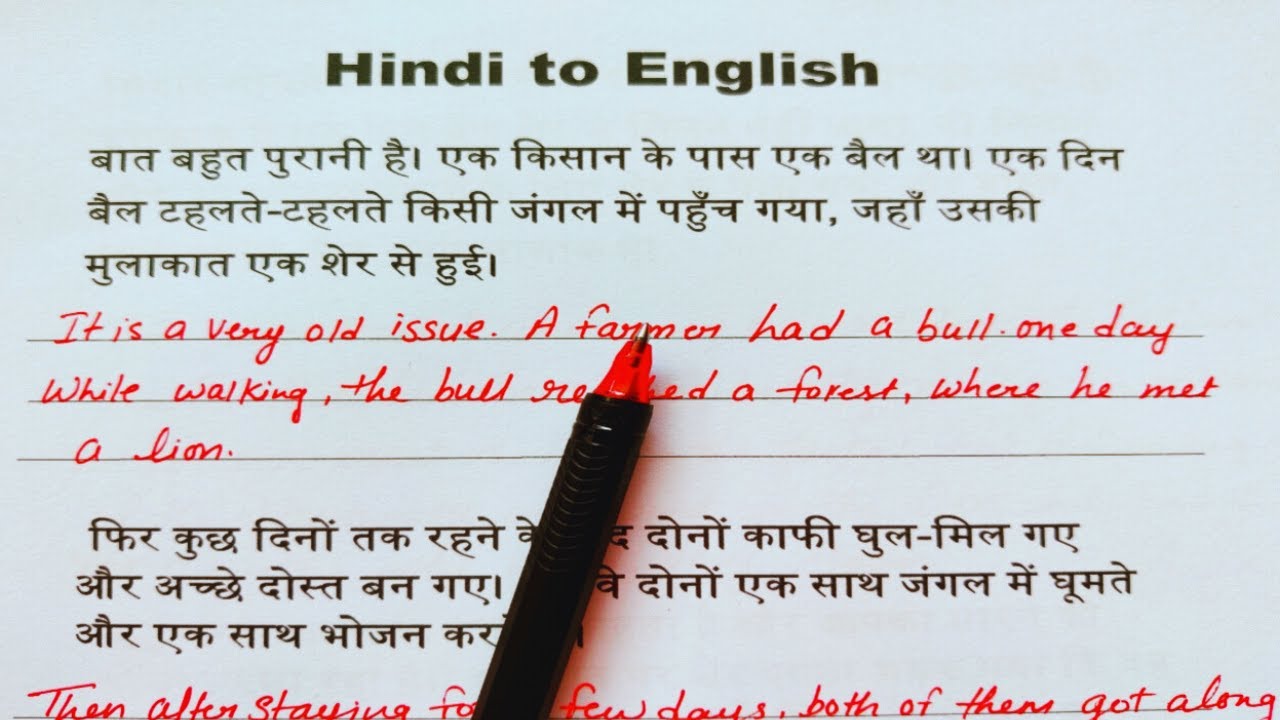 Hindi to English
बात बहुत पुरानी है। एक किसान के पास एक बैल था। एक दिन
बैल टहलते-टहलते किसी जंगल में पहुँच गया, जहाँ उसकी
मुलाकात एक शेर से हुई।
It is a very old issue. A farmer had a bull. one day
While walking, the bull reached a forest, where he met
a lion.
फिर कुछ दिनों तक रहने दोनों काफी घुल-मिल गए
और अच्छे दोस्त बन गए। वे दोनों एक साथ जंगल में घूमते
और एक साथ भोजन
Then after staying few days, both of them got along